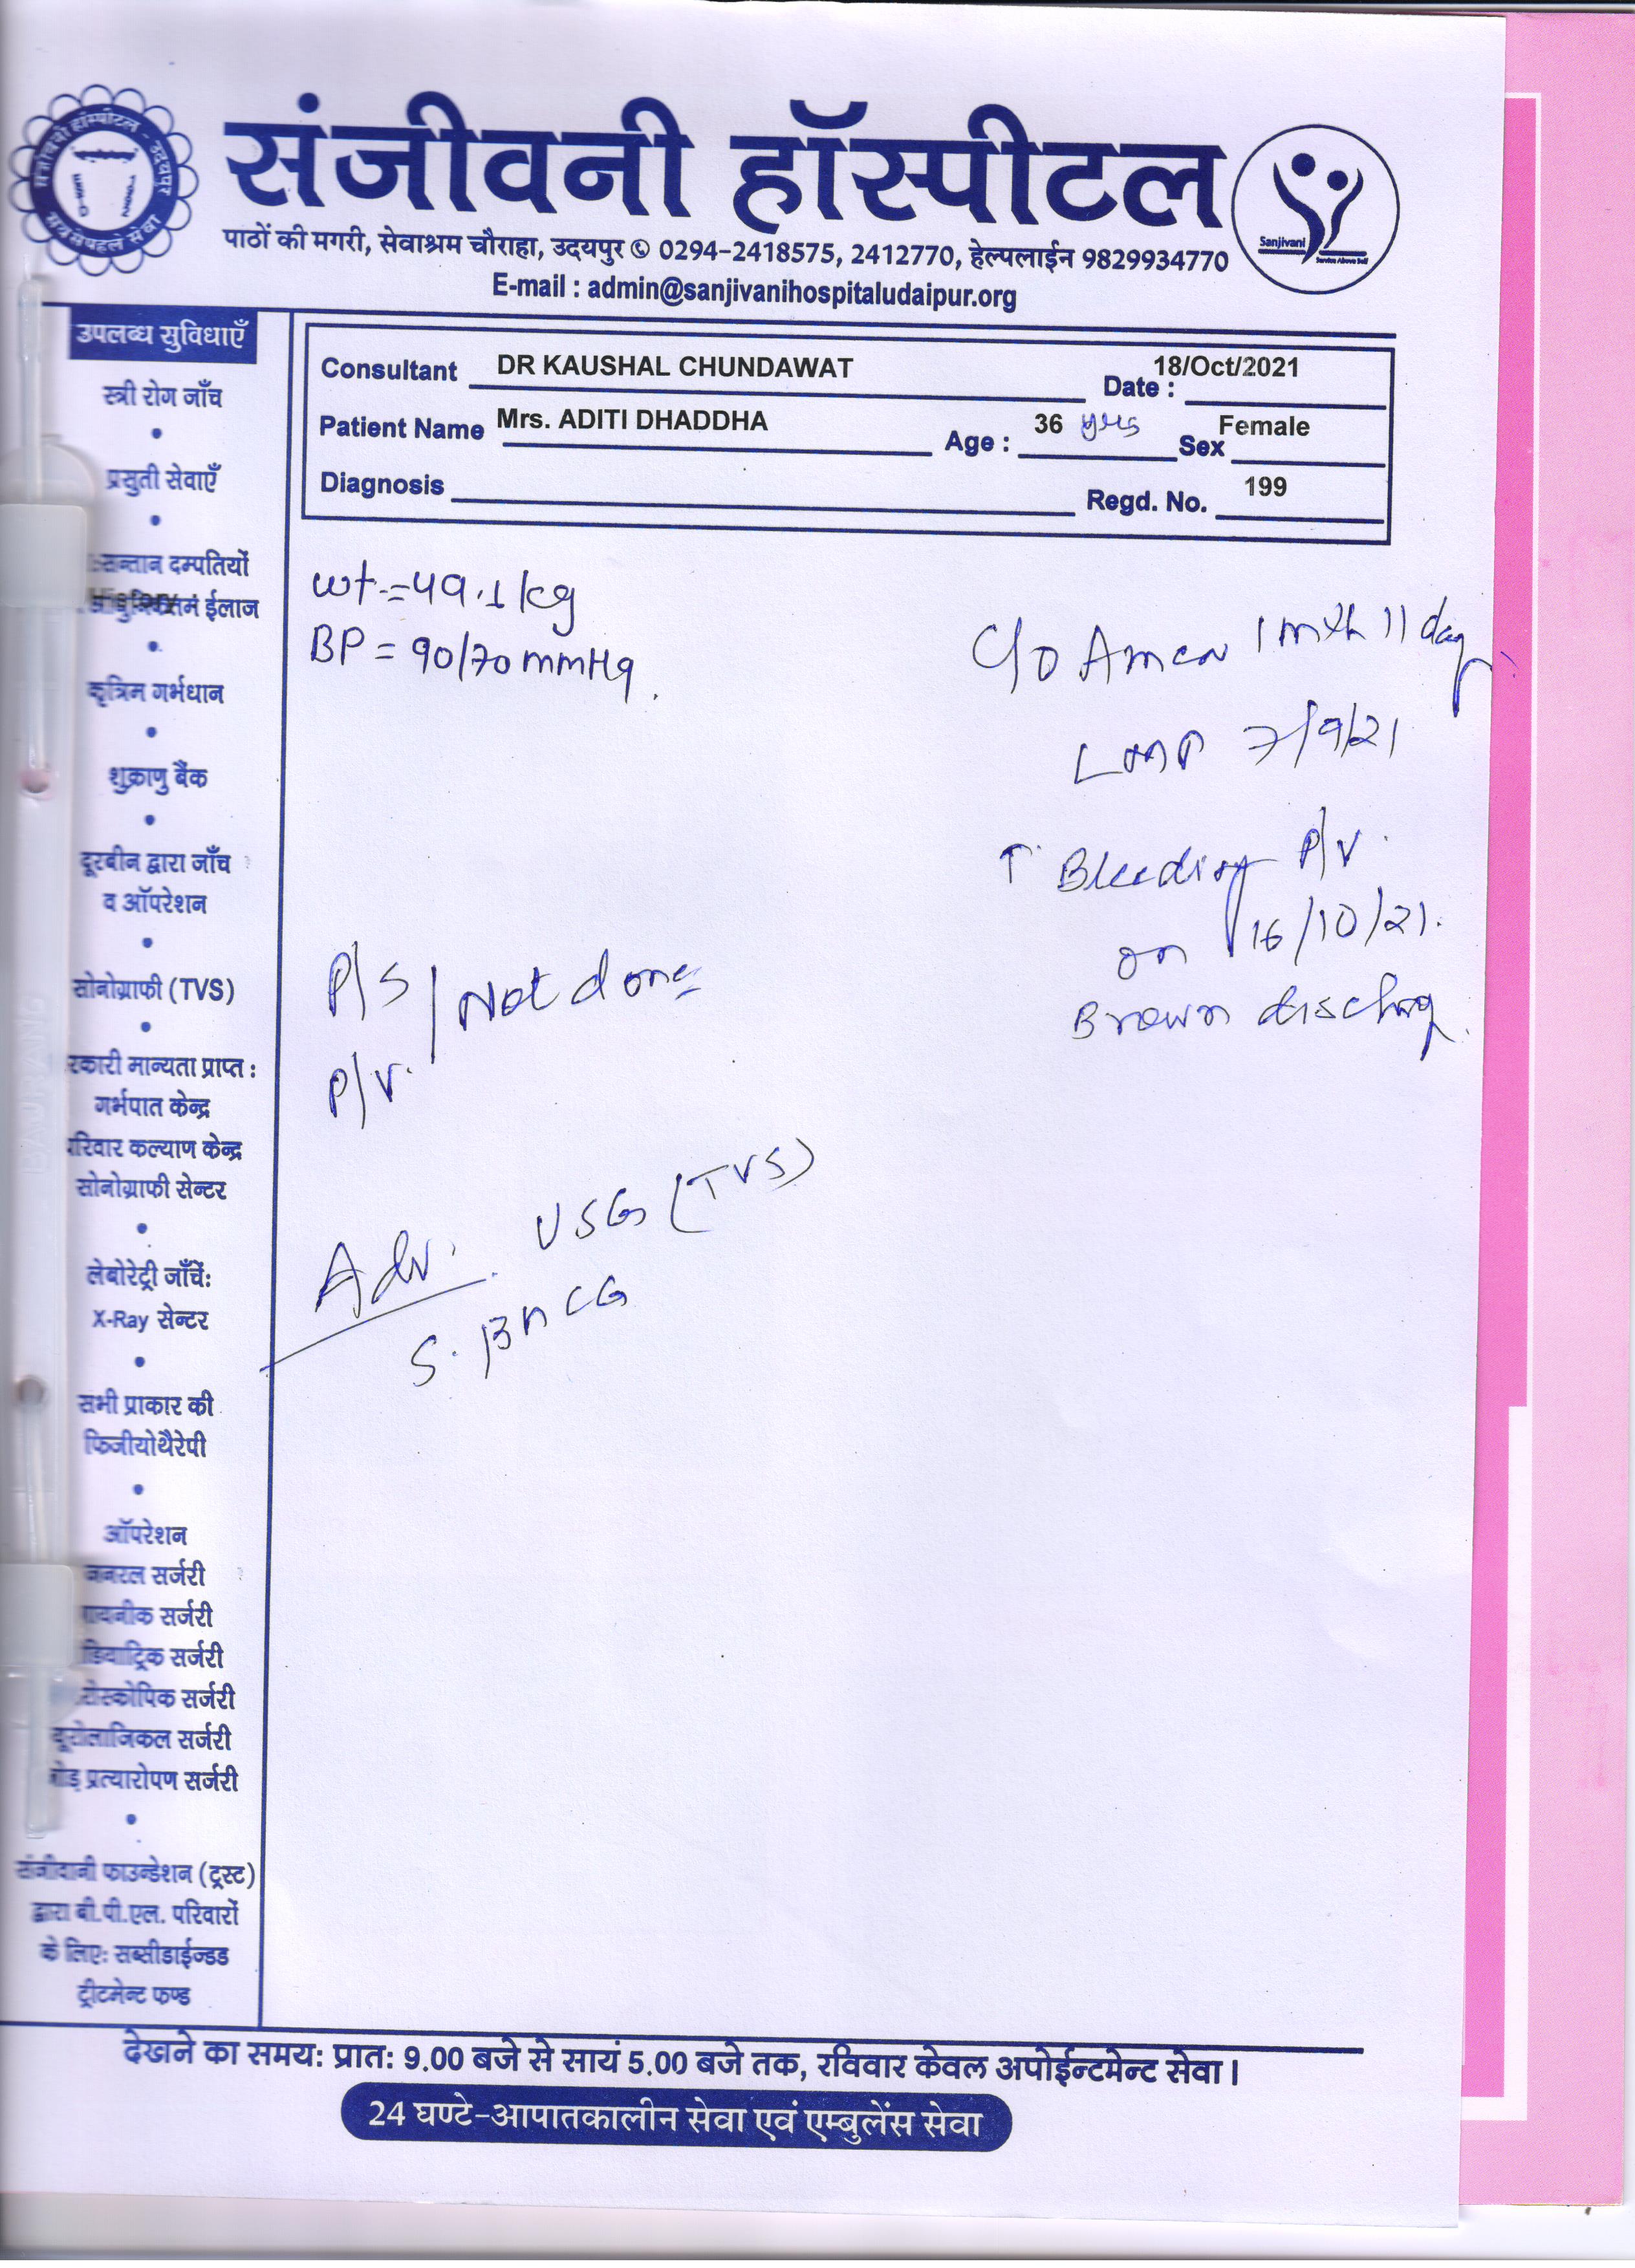 संजीवनी हॉस्पीटल
पाठों की मगरी, सेवाश्रम चौराहा, उदयपुर 0294-2418575, 2412770, हेल्पलाईन 9829934770
E-mail : admin@sanjivanihospitaludaipur.org
Sanjivani
Service Above Self
Consultant DR KAUSHAL CHUNDAWAT Date : 18/Oct/2021
Patient Name Mrs. ADITI DHADDHA Age : 36 yrs Sex Female
Diagnosis Regd. No. 199
उपलब्ध सुविधाएँ
स्त्री रोग जाँच
प्रसुती सेवाएँ
दम्पतियों
ईलाज
कृत्रिम गर्भधान
शुक्राणु बैंक
दूरबीन द्वारा जाँच
व ऑपरेशन
सोनोग्राफी (TVS)
मान्यता प्राप्त :
गर्भपात केन्द्र
कल्याण केन्द्र
सोनोग्राफी सेन्टर
लेबोरेट्री जाँचें:
X-Ray सेन्टर
सभी प्रकार की
फिजीयोथैरेपी
ऑपरेशन
जनरल सर्जरी
सर्जरी
सर्जरी
सर्जरी
सर्जरी
प्रत्यारोपण सर्जरी
फाउन्डेशन (ट्रस्ट)
द्वारा बी.पी.एल. परिवारों
के लिए: सब्सीडाईज्डड
ट्रीटमेन्ट फण्ड
wt.=49.1 kg
BP = 90/70 mmHg.
C/O Amen 1 mth 11 day
LMP 7/9/21
↑ Bleeding P/V.
on 16/10/21.
Brown discharg
P/S Not done
P/V.
Adv. USG (TVS)
S. βHCG
देखने का समय: प्रात: 9.00 बजे से सायं 5.00 बजे तक, रविवार केवल अपोईन्टमेन्ट सेवा।
24 घण्टे-आपातकालीन सेवा एवं एम्बुलेंस सेवा